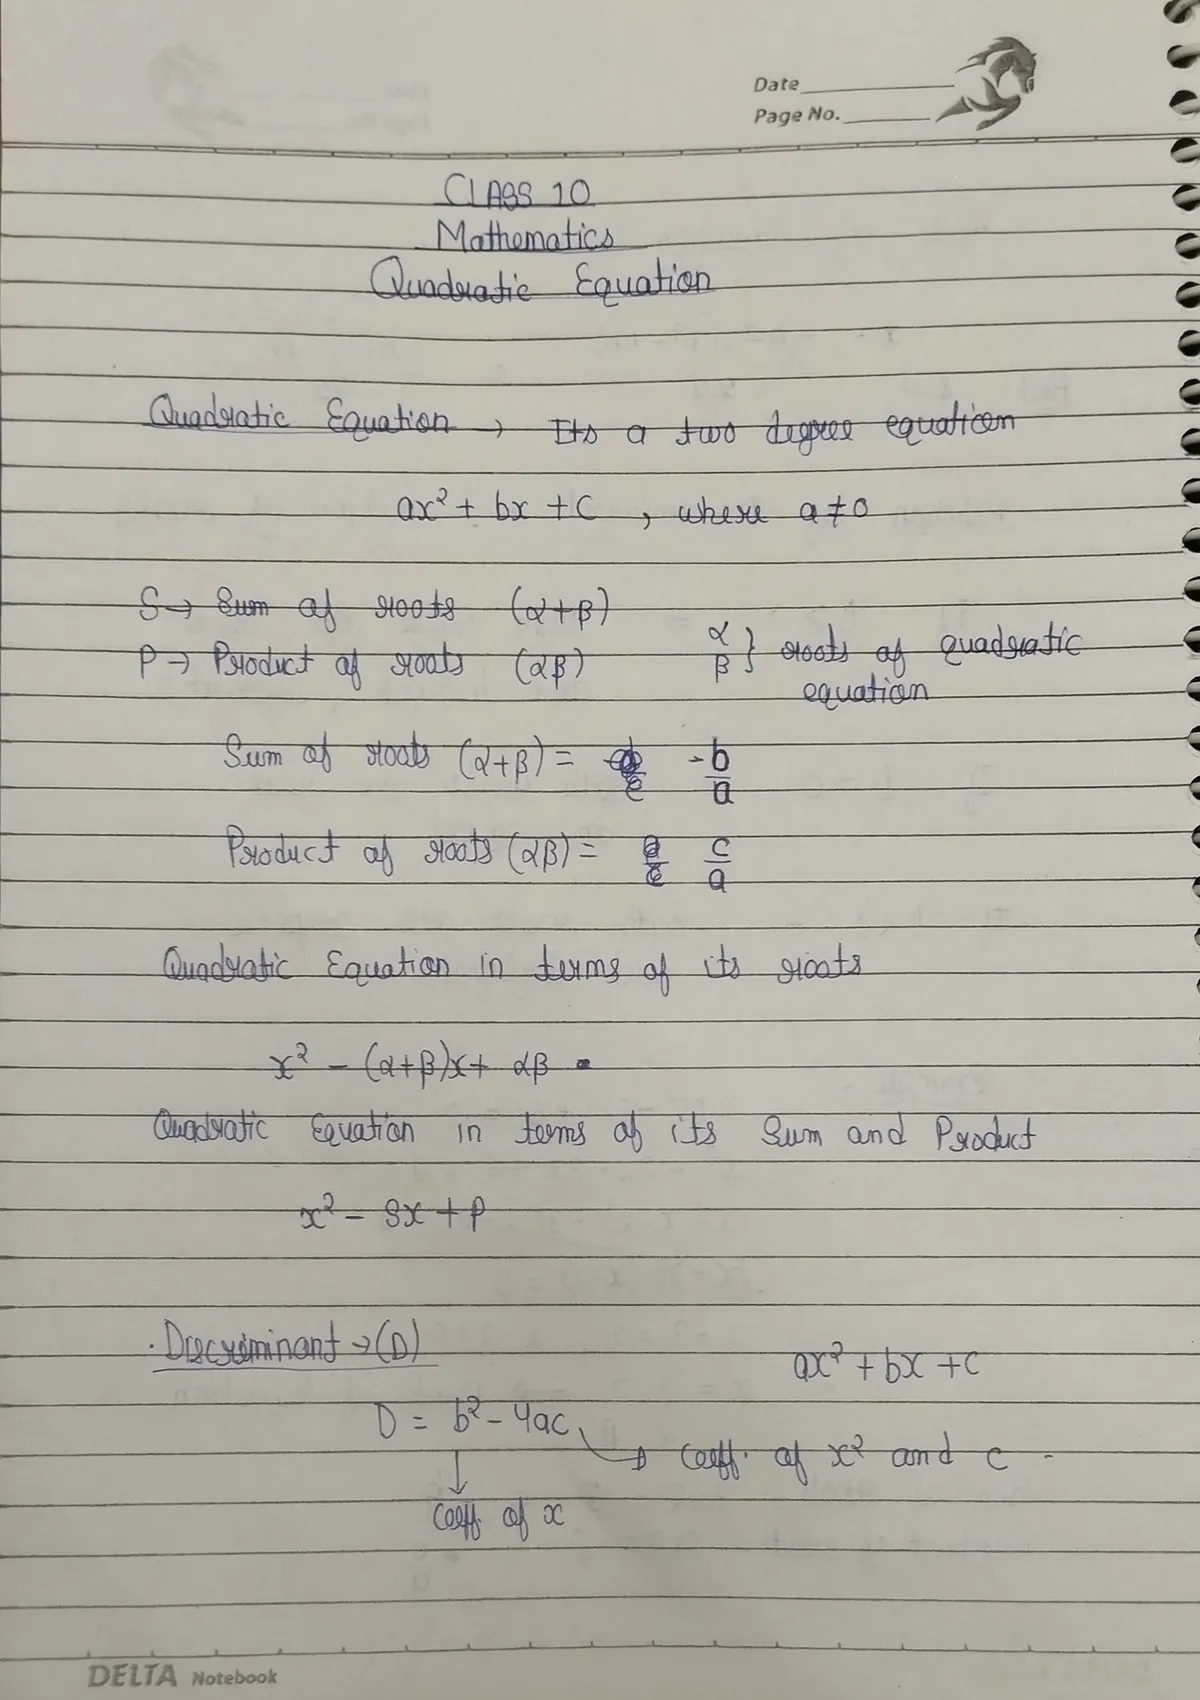 Date
Page No.
CLASS 10
Mathematics
Quadratic Equation
Quadratic Equation → Its a two degree equation
ax² + bx + c , where a ≠ 0
S → Sum of roots (α+β)
P → Product of roots (αβ)
α
β } roots of quadratic
equation
Sum of roots (α+β) = -b/a
Product of roots (αβ) = c/a
Quadratic Equation in terms of its roots
x² - (α+β)x + αβ
Quadratic Equation in terms of its Sum and Product
x² - Sx + P
. Discriminant → (D)
ax² + bx + c
D = b² - 4ac
→ Coeff. of x² and c
↓
Coeff. of x
DELTA Notebook